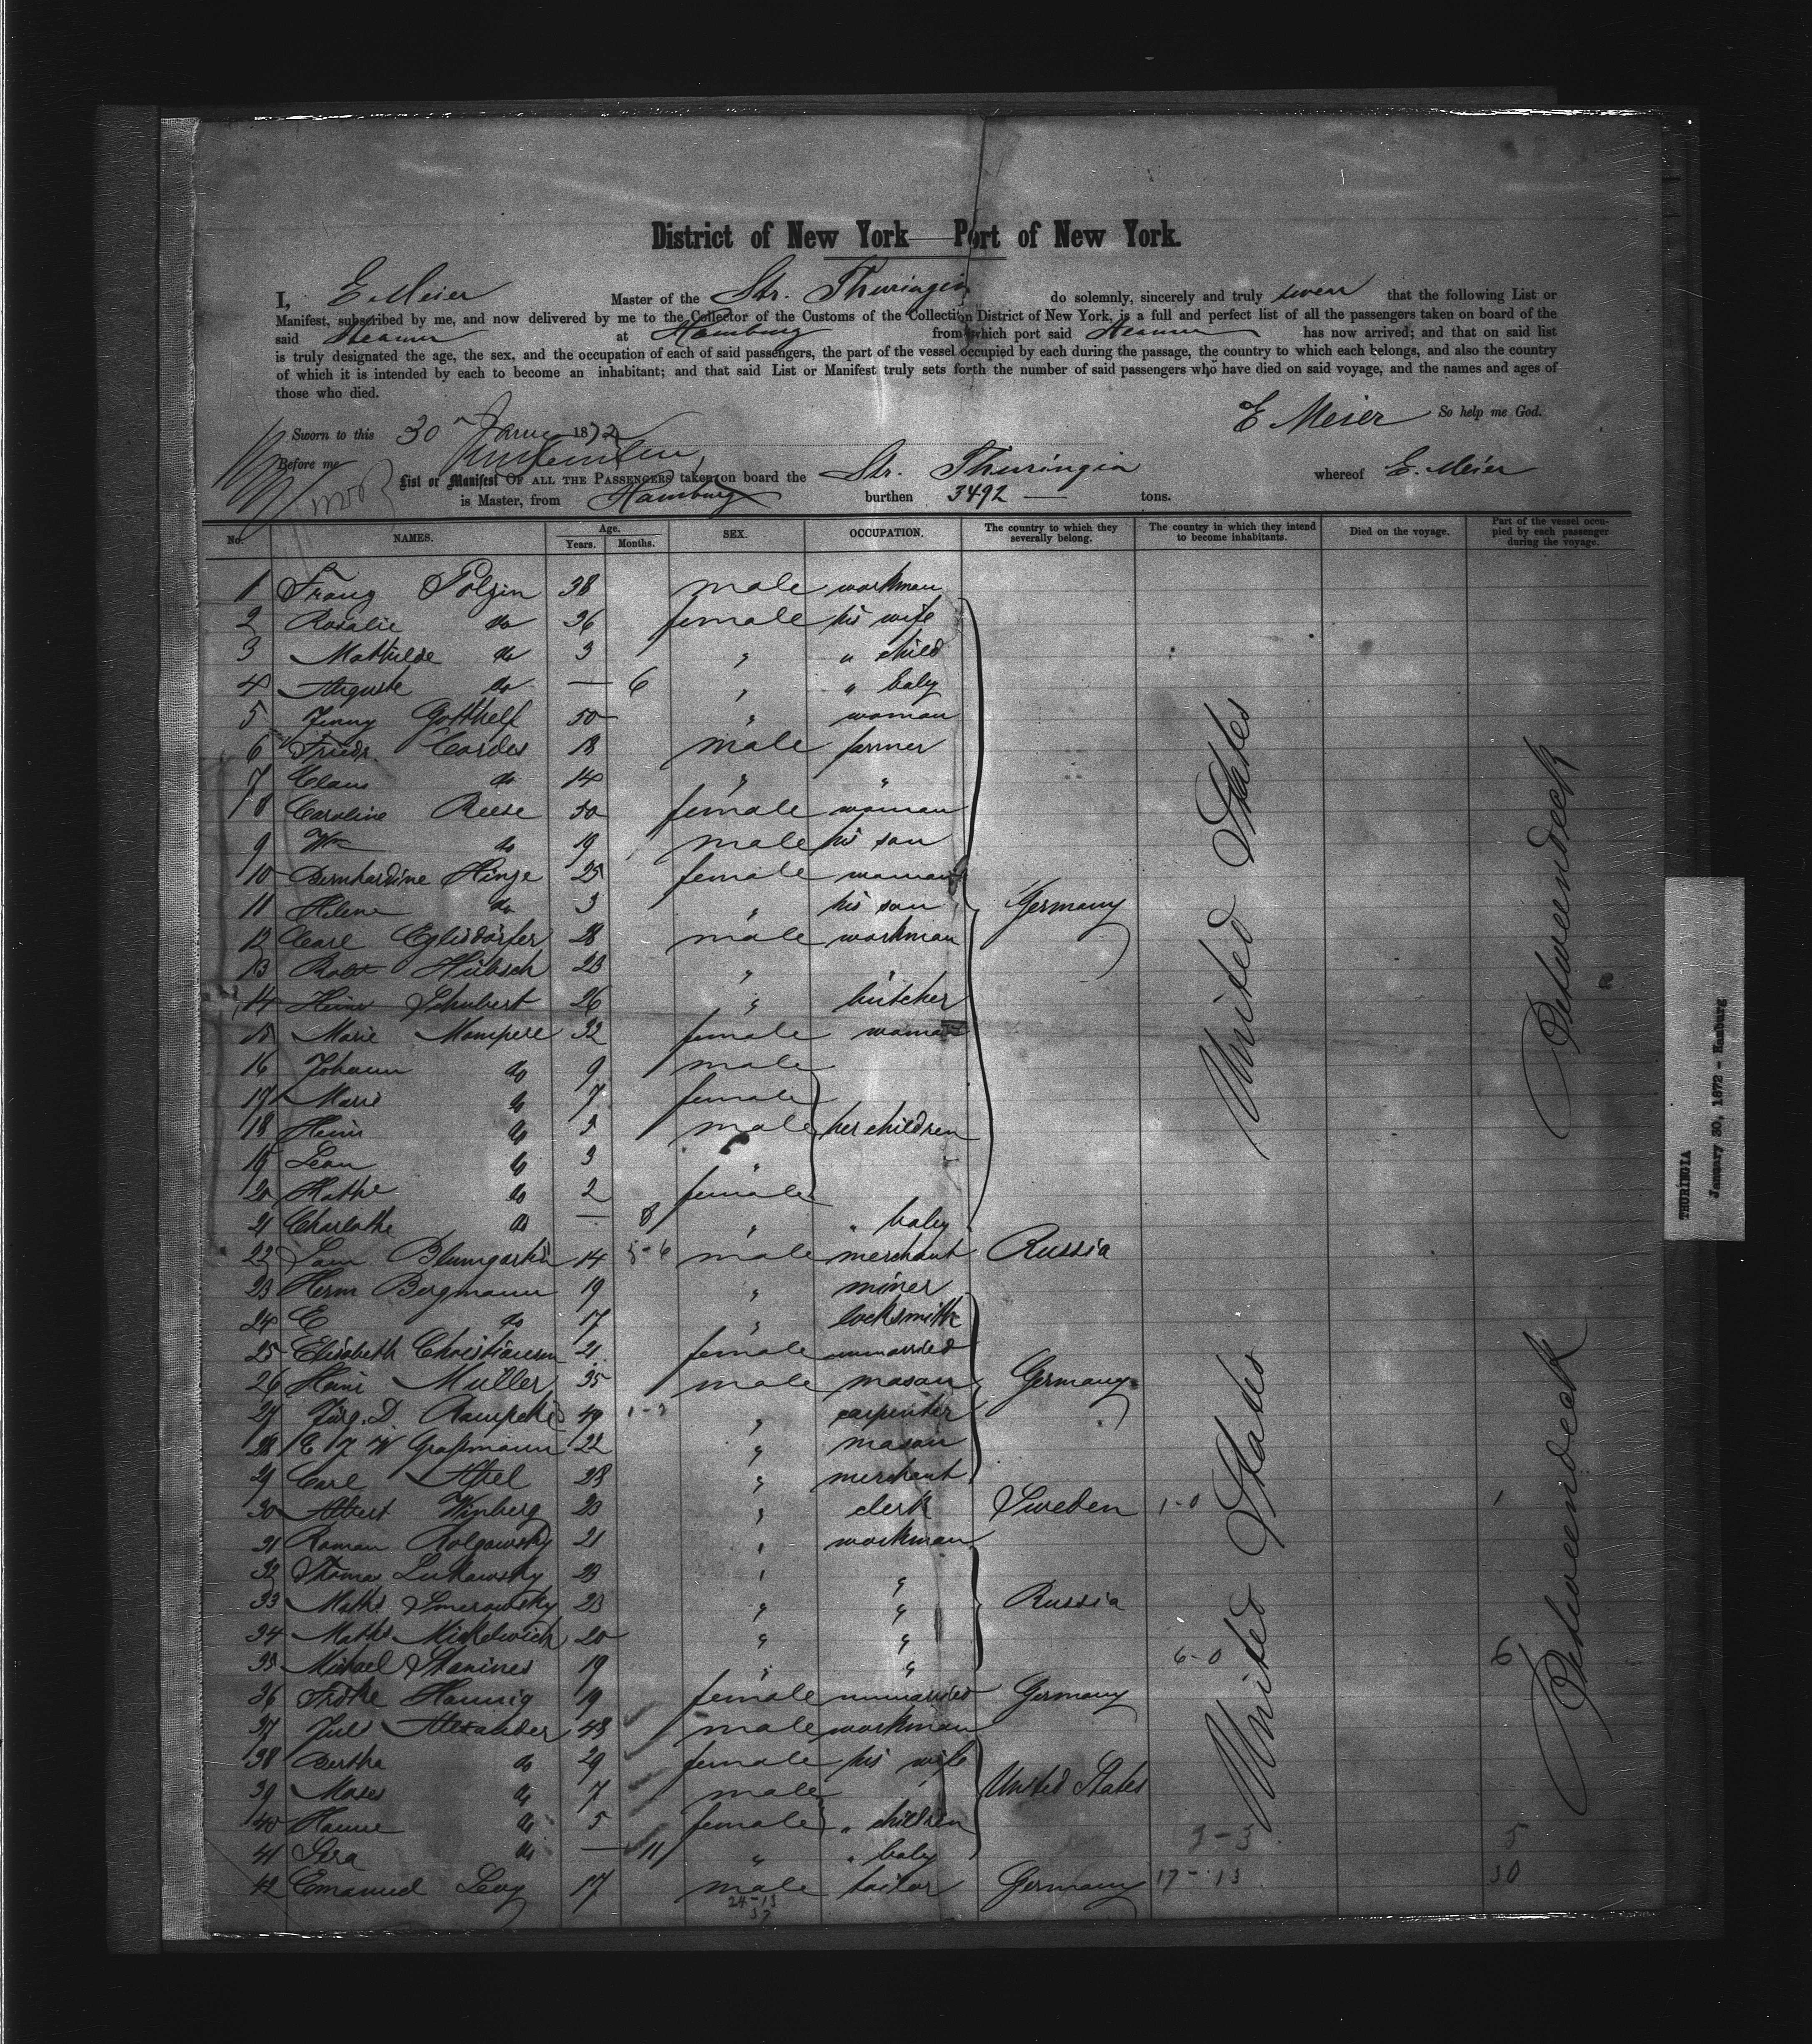 District of New York — Port of New York.
I, E. Meier Master of the Str. Thuringia do solemnly, sincerely and truly swear that the following List or
Manifest, subscribed by me, and now delivered by me to the Collector of the Customs of the Collection District of New York, is a full and perfect list of all the passengers taken on board of the
said Steamer at Hamburg from which port said Steamer has now arrived; and that on said list
is truly designated the age, the sex, and the occupation of each of said passengers, the part of the vessel occupied by each during the passage, the country to which each belongs, and also the country
of which it is intended by each to become an inhabitant; and that said List or Manifest truly sets forth the number of said passengers who have died on said voyage, and the names and ages of
those who died.
E Meier So help me God.
Sworn to this 30 1872
Before me
List or Manifest OF ALL THE PASSENGERS taken on board the Str. Thuringia whereof E. Meier
is Master, from Hamburg burthen 3492 — tons.
No. NAMES. Age. Years. Months. SEX. OCCUPATION. The country to which they severally belong. The country in which they intend to become inhabitants. Died on the voyage. Part of the vessel occupied by each passenger during the voyage.
1 Franz Polzin 38 male workman
2 Rosalie do 36 female his wife
3 Mathilde do 3 " " child
4 Auguste do — 6 " " baby
5 Jenny Gotthelf 50 " woman
6 Friedr. Cordes 18 male farmer
7 Claus do 14 " "
8 Caroline Reese 50 female woman
9 Wm do 19 male his son
10 Bernhardine Hinze 25 female woman
11 Helene do 3 " his son Germany
12 Carl Eglisdörfer 28 male workman
13 Robt Hübsch 23 "
14 Heinr Schubert 26 " butcher
15 Marie Mampere 32 female woman
16 Johann do 9 male
17 Marie do 7 female
18 Heinr do male her children
19 Leon do 3 "
20 Kathe do 2 female
21 Charlothe do — 8 " " baby
22 Sam Blumgarten 14 5-6 male merchant Russia
23 Herm Bergmann 19 " miner
24 E do 17 " locksmith
25 Elisabeth Christiansen 21 female unmarried
26 Heinr Müller 35 male mason Germany
27 Jürg. D. 49 1-3 " carpenter
28 C F W Graßmann 22 " mason
29 Carl Apel 28 " merchant
30 Albert Winberg 20 " clerk Sweden 1-0 1
31 Roman Rolgowsky 21 " workman
32 Thomas Lukawsky 23 " "
33 Maths Smerowsky 23 " " Russia
34 Maths Mickelwich 20 " "
35 Michael Stanines 19 " " 6-0 6
36 Frdke Hannig 19 female unmarried Germany
37 Jul Alexander 48 male workman
38 Bertha do 29 female his wife
39 Moses do 7 male United States
40 Hanne do 5 female " children
41 Sera do — 11 " " baby 3-3 5
42 Emanuel Levy 17 male tailor Germany 17-13 30
24-13
37
United States
United States
Betweendeck
Betweendeck
THURINGIA
January 30, 1872 - Hamburg